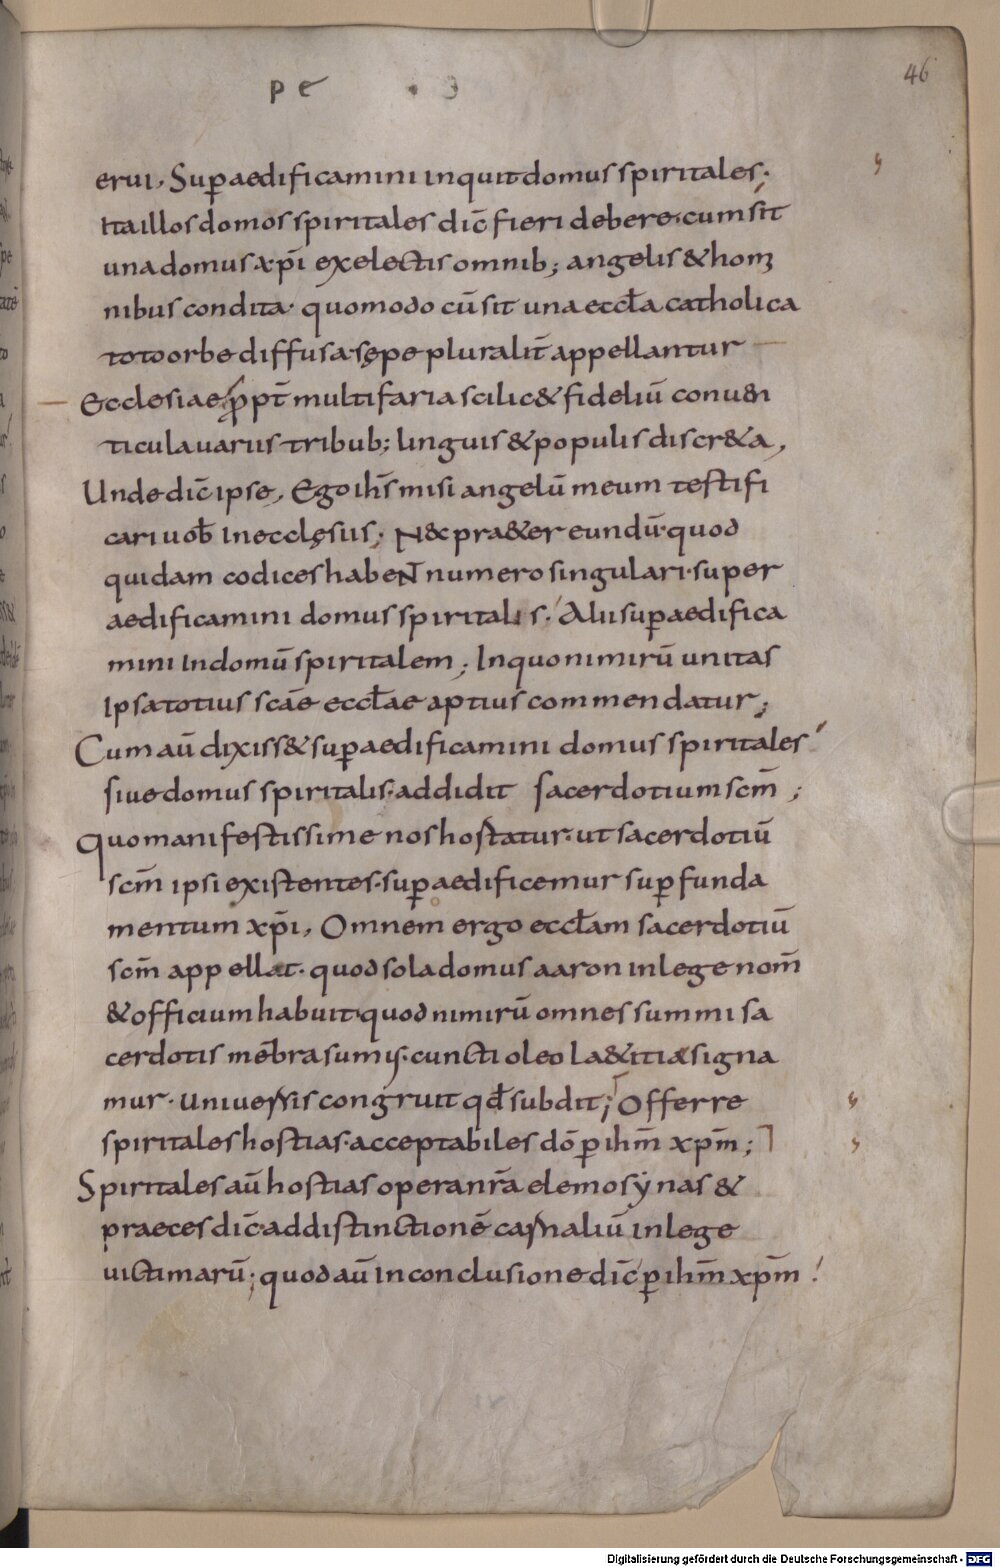 pe
46
erui, Sup̄aedificamini inquit domus spiritales.
Ita illos domos spiritales dic̄ fieri debere. cum sit
una domus xp̄i ex electis omnib; angelis & homi
nibus condita. quomodo cū sit una eccl̄a catholica
toto orbe diffusa. sępe pluralit̄ appellantur
Ecclesiae, ꝓpt̄ multifaria scilic& fideliū conuen
ticula uariis tribub; linguis & populis discr&a,
Unde dic̄ ipse, Ego ih̄s misi angelū meum testifi
cari uob̄ in ecclęsiis; Nec pra&ereundū. quod
quidam codices habeNT numero singulari. super
aedificamini domus spiritalis. Alii sup̄aedifica
mini in domū spiritalem; In quo nimirū unitas
ipsa totius sc̄ae eccl̄ae aptius commendatur;
Cum aū dixiss& sup̄aedificamini domus spiritales
siue domus spiritalis. addidit sacerdotium scm̄;
Quo manifestissime nos hostatur. ut sacerdotiū
scm̄ ipsi existentes. sup̄aedificemur sup̄ funda
mentum xp̄i, Omnem ergo eccl̄am sacerdotiū
scm̄ appellat. quod sola domus aaron in lege nom̄
& officium habuit. quod nimirū omnes summi sa
cerdotis mēbra sumꝰ. cuncti oleo la&itiæ signa
mur. Uniuersis congruit qd̄ subdit; Offerre
spiritales hostias. acceptabiles dō p̄ ihm̄ xpm̄;
Spiritales aū hostias opera nr̄a elemosẏnas &
praeces dic̄. ad distinctionē carnaliū in lege
uictimarū; quod aū in conclusione dic̄ p̄ ihm̄ xpm̄
Digitalisierung gefördert durch die Deutsche Forschungsgemeinschaft - DFG